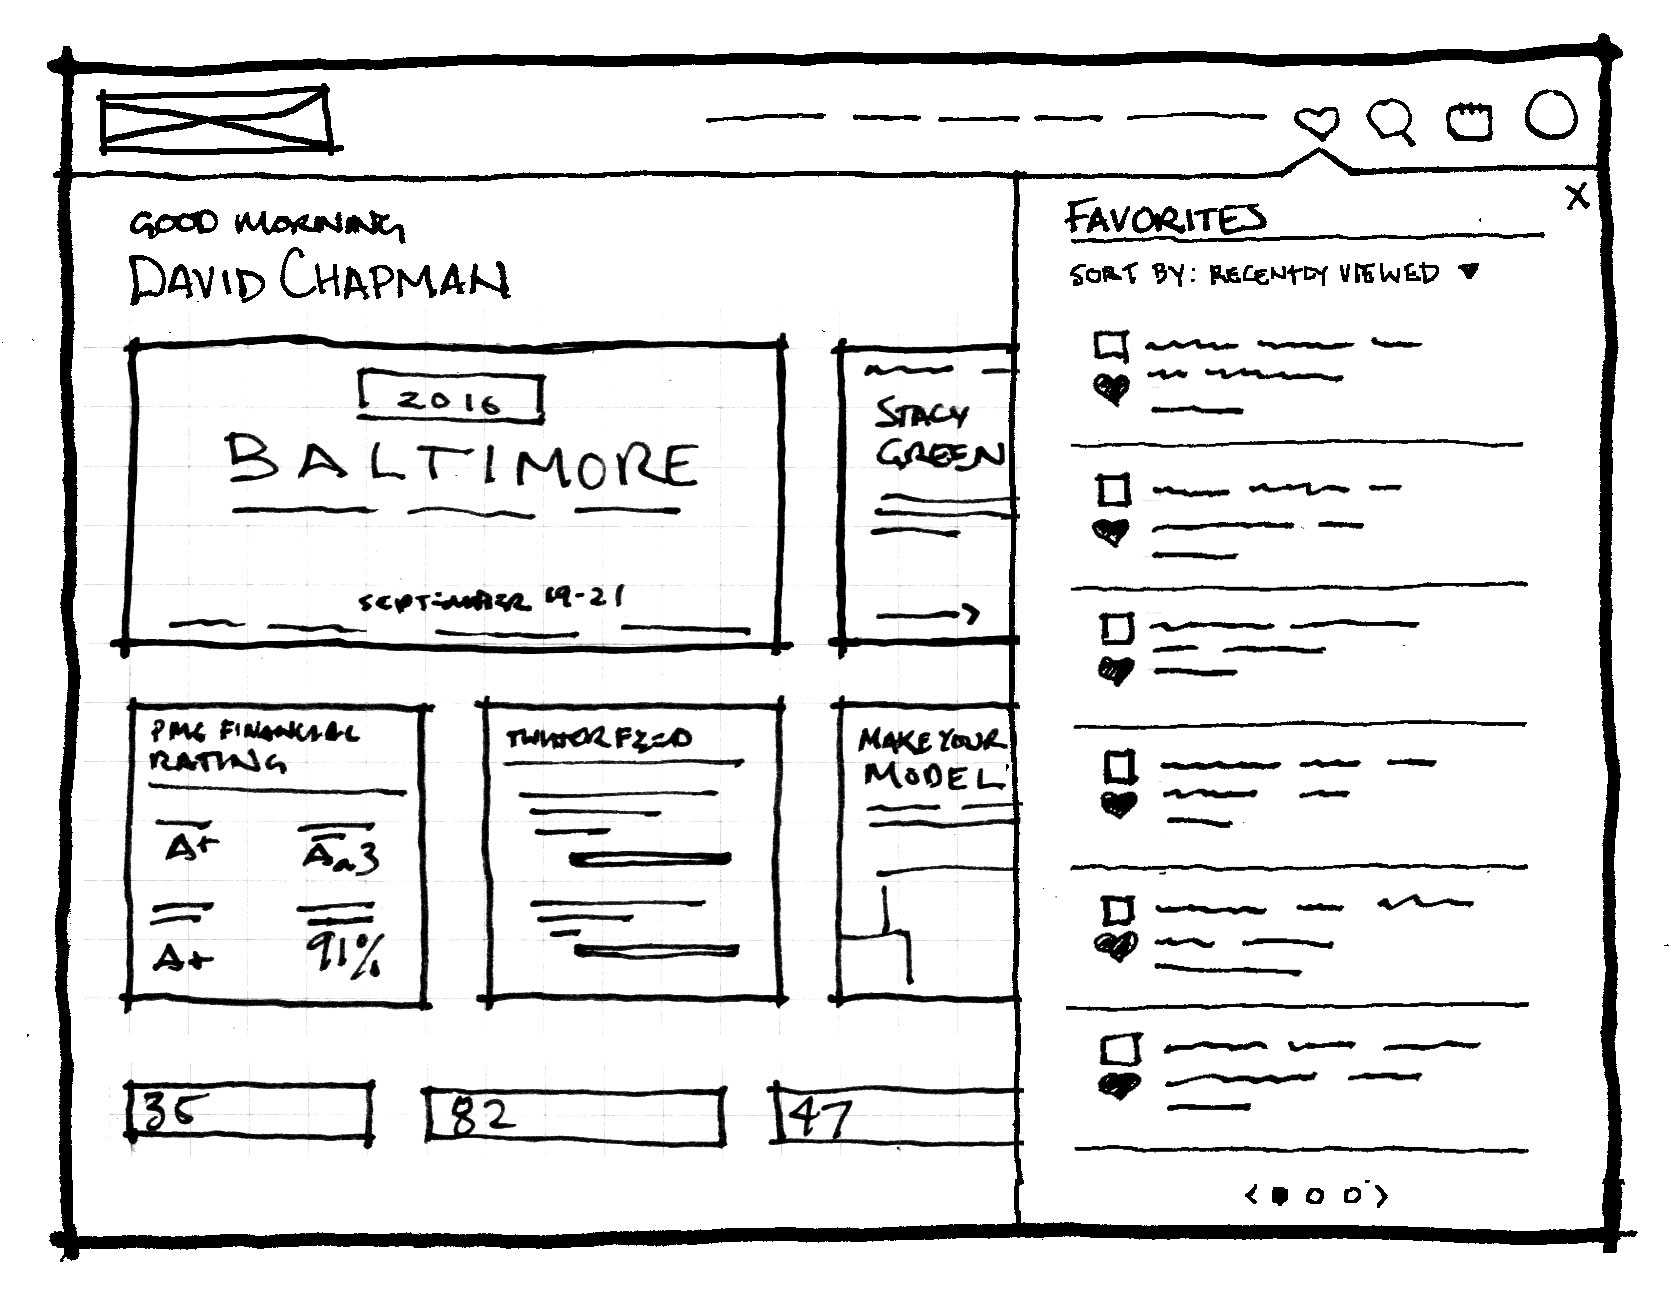 GOOD MORNING
DAVID CHAPMAN
2016
BALTIMORE
SEPTEMBER 19-21
STACY
GREEN
PMG FINANCIAL
RATING
A+
Aa3
A+
91%
TWITTER FEED
MAKE YOUR
MODEL
35
82
47
FAVORITES
X
SORT BY: RECENTLY VIEWED